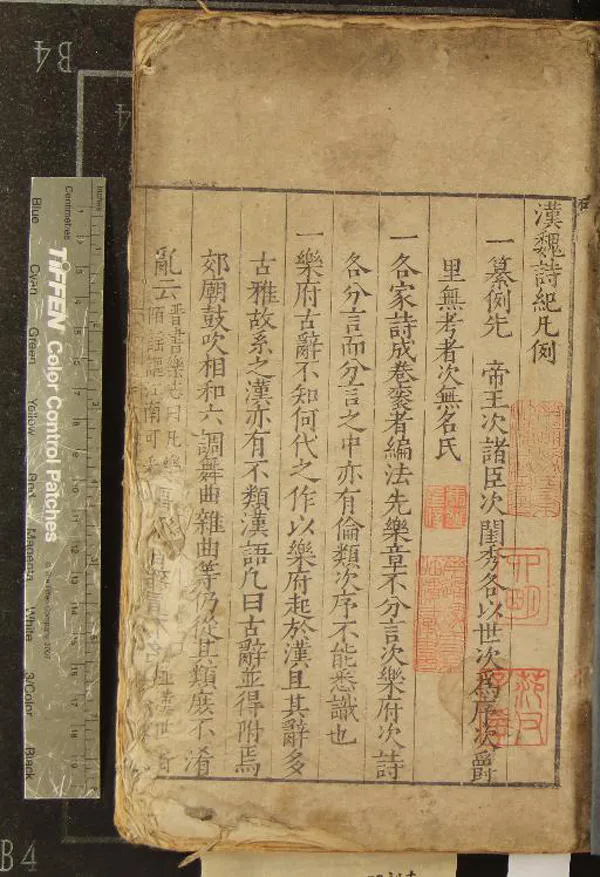 漢魏詩紀凡例
一纂例先　帝王次諸臣次閨秀各以世次爲序次爵
里無考者次無名氏
一各家詩成卷褎者編法先樂章不分言次樂府次詩
各分言而分言之中亦有倫類次序不能悉識也
一樂府古辭不知何代之作以樂府起於漢且其辭多
古雅故系之漢亦有不類漢語凡曰古辭並得附焉
郊廟鼓吹相和六調舞曲雜曲等仍從其類庶不淆
亂云晋書樂志曰凡樂
陌謡謳江南可
漢世街
B4
4
Inches
Centimetres
TIFFEN Color Control Patches
© The Tiffen Company, 2007
Blue
Cyan
Green
Yellow
Red
Magenta
White
3/Color
Black
B4